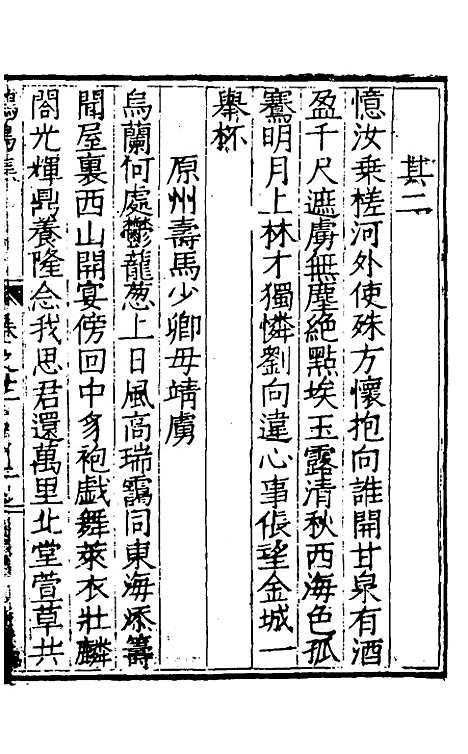 其二
憶汝乗槎河外使殊方懷抱向誰開甘泉有酒
盈千尺遮虜無塵絶點埃玉露清秋西海色孤
騫明月上林才獨憐劉向違心事悵望金城一
舉杯
原州壽馬少卿母靖虜
烏蘭何處鬱龍葱上日風高瑞靄同東海添籌
聞屋裏西山開宴傍回中豸袍戯舞萊衣壯麟
閣光輝鼎養隆念我思君還萬里北堂萱草共